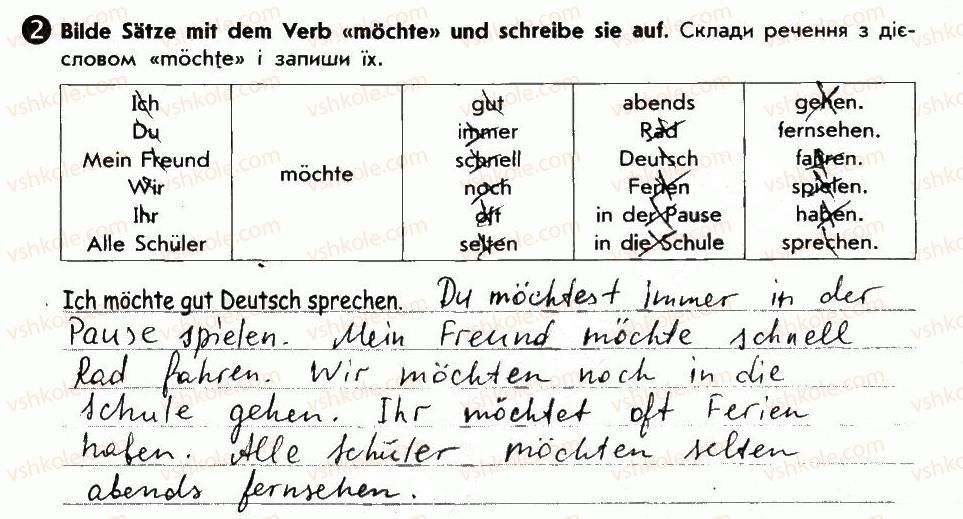 2 Bilde Sätze mit dem Verb «möchte» und schreibe sie auf. Склади речення з діє-
словом «möchte» і запиши їх.
Ich gut abends gehen.
Du immer Rad fernsehen.
Mein Freund schnell Deutsch fahren.
möchte
Wir noch Ferien spielen.
Ihr oft in der Pause haben.
Alle Schüler selten in die Schule sprechen.
Ich möchte gut Deutsch sprechen. Du möchtest immer in der
Pause spielen. Mein Freund möchte schnell
Rad fahren. Wir möchten noch in die
Schule gehen. Ihr möchtet oft Ferien
haben. Alle Schüler möchten selten
abends fernsehen.
vshkole.com